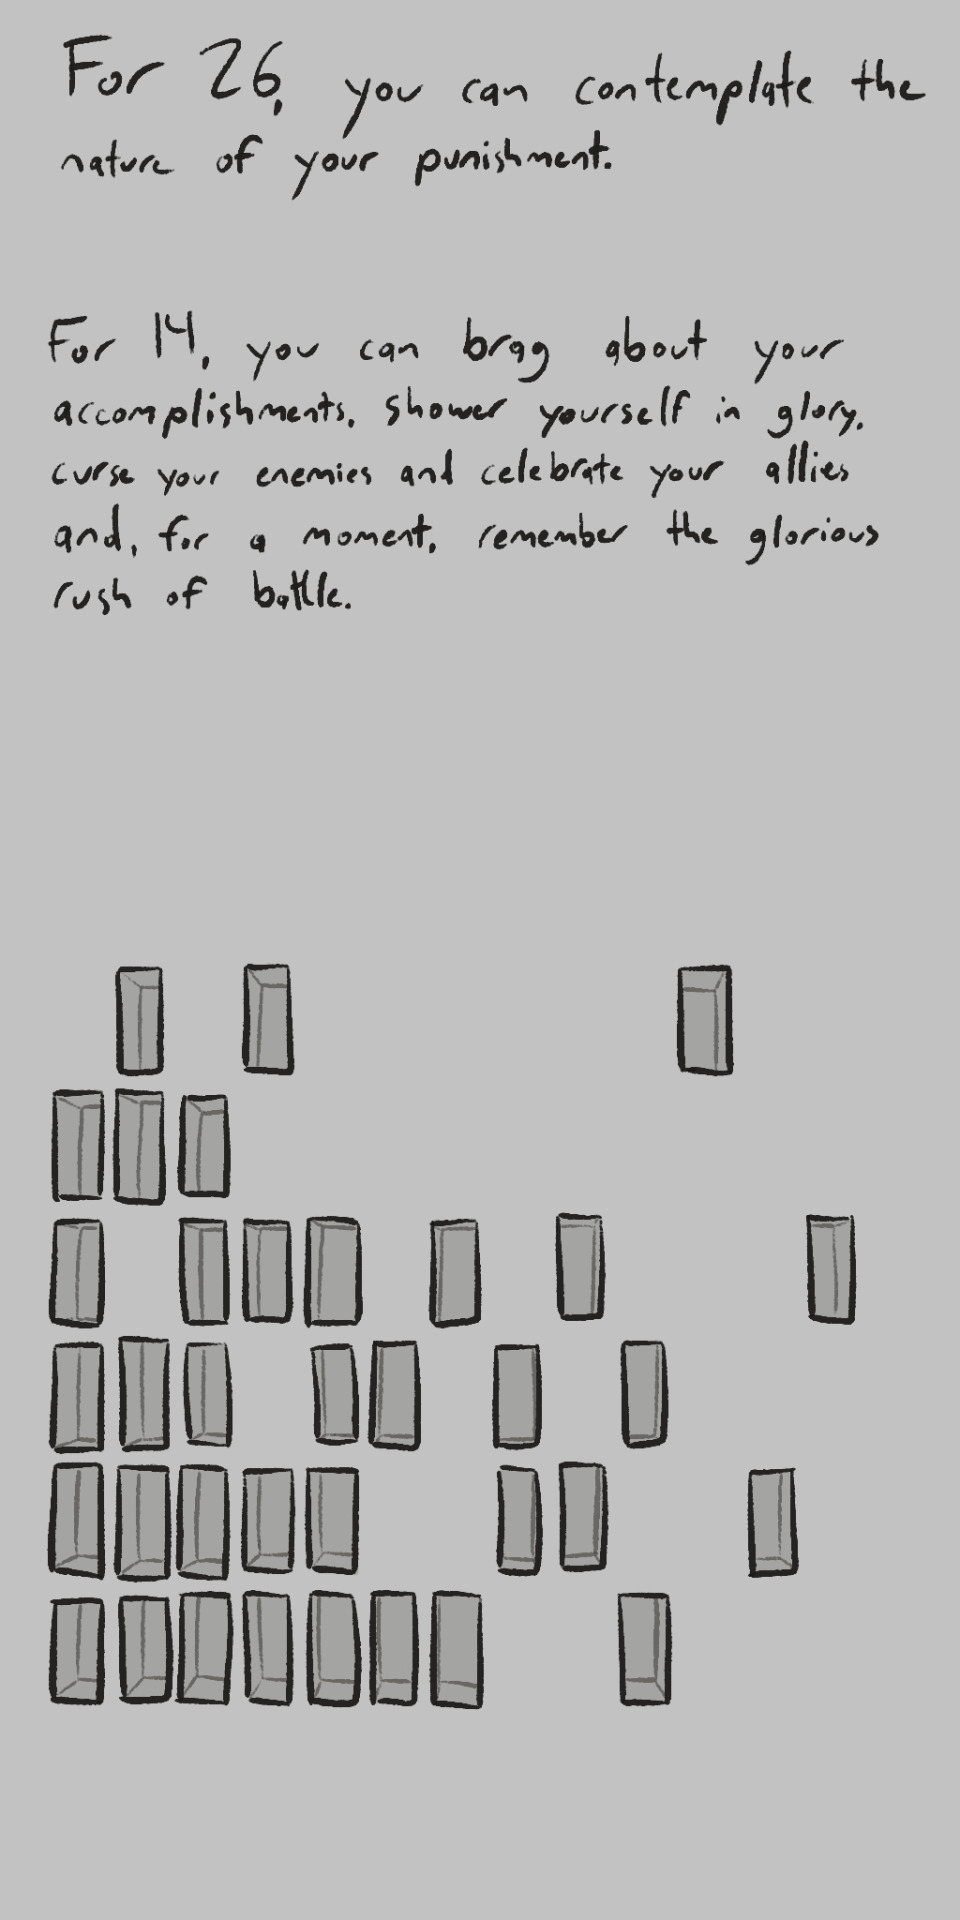 For 26, you can contemplate the
nature of your punishment.
For 14, you can brag about your
accomplishments, shower yourself in glory,
curse your enemies and celebrate your allies
and, for a moment, remember the glorious
rush of battle.